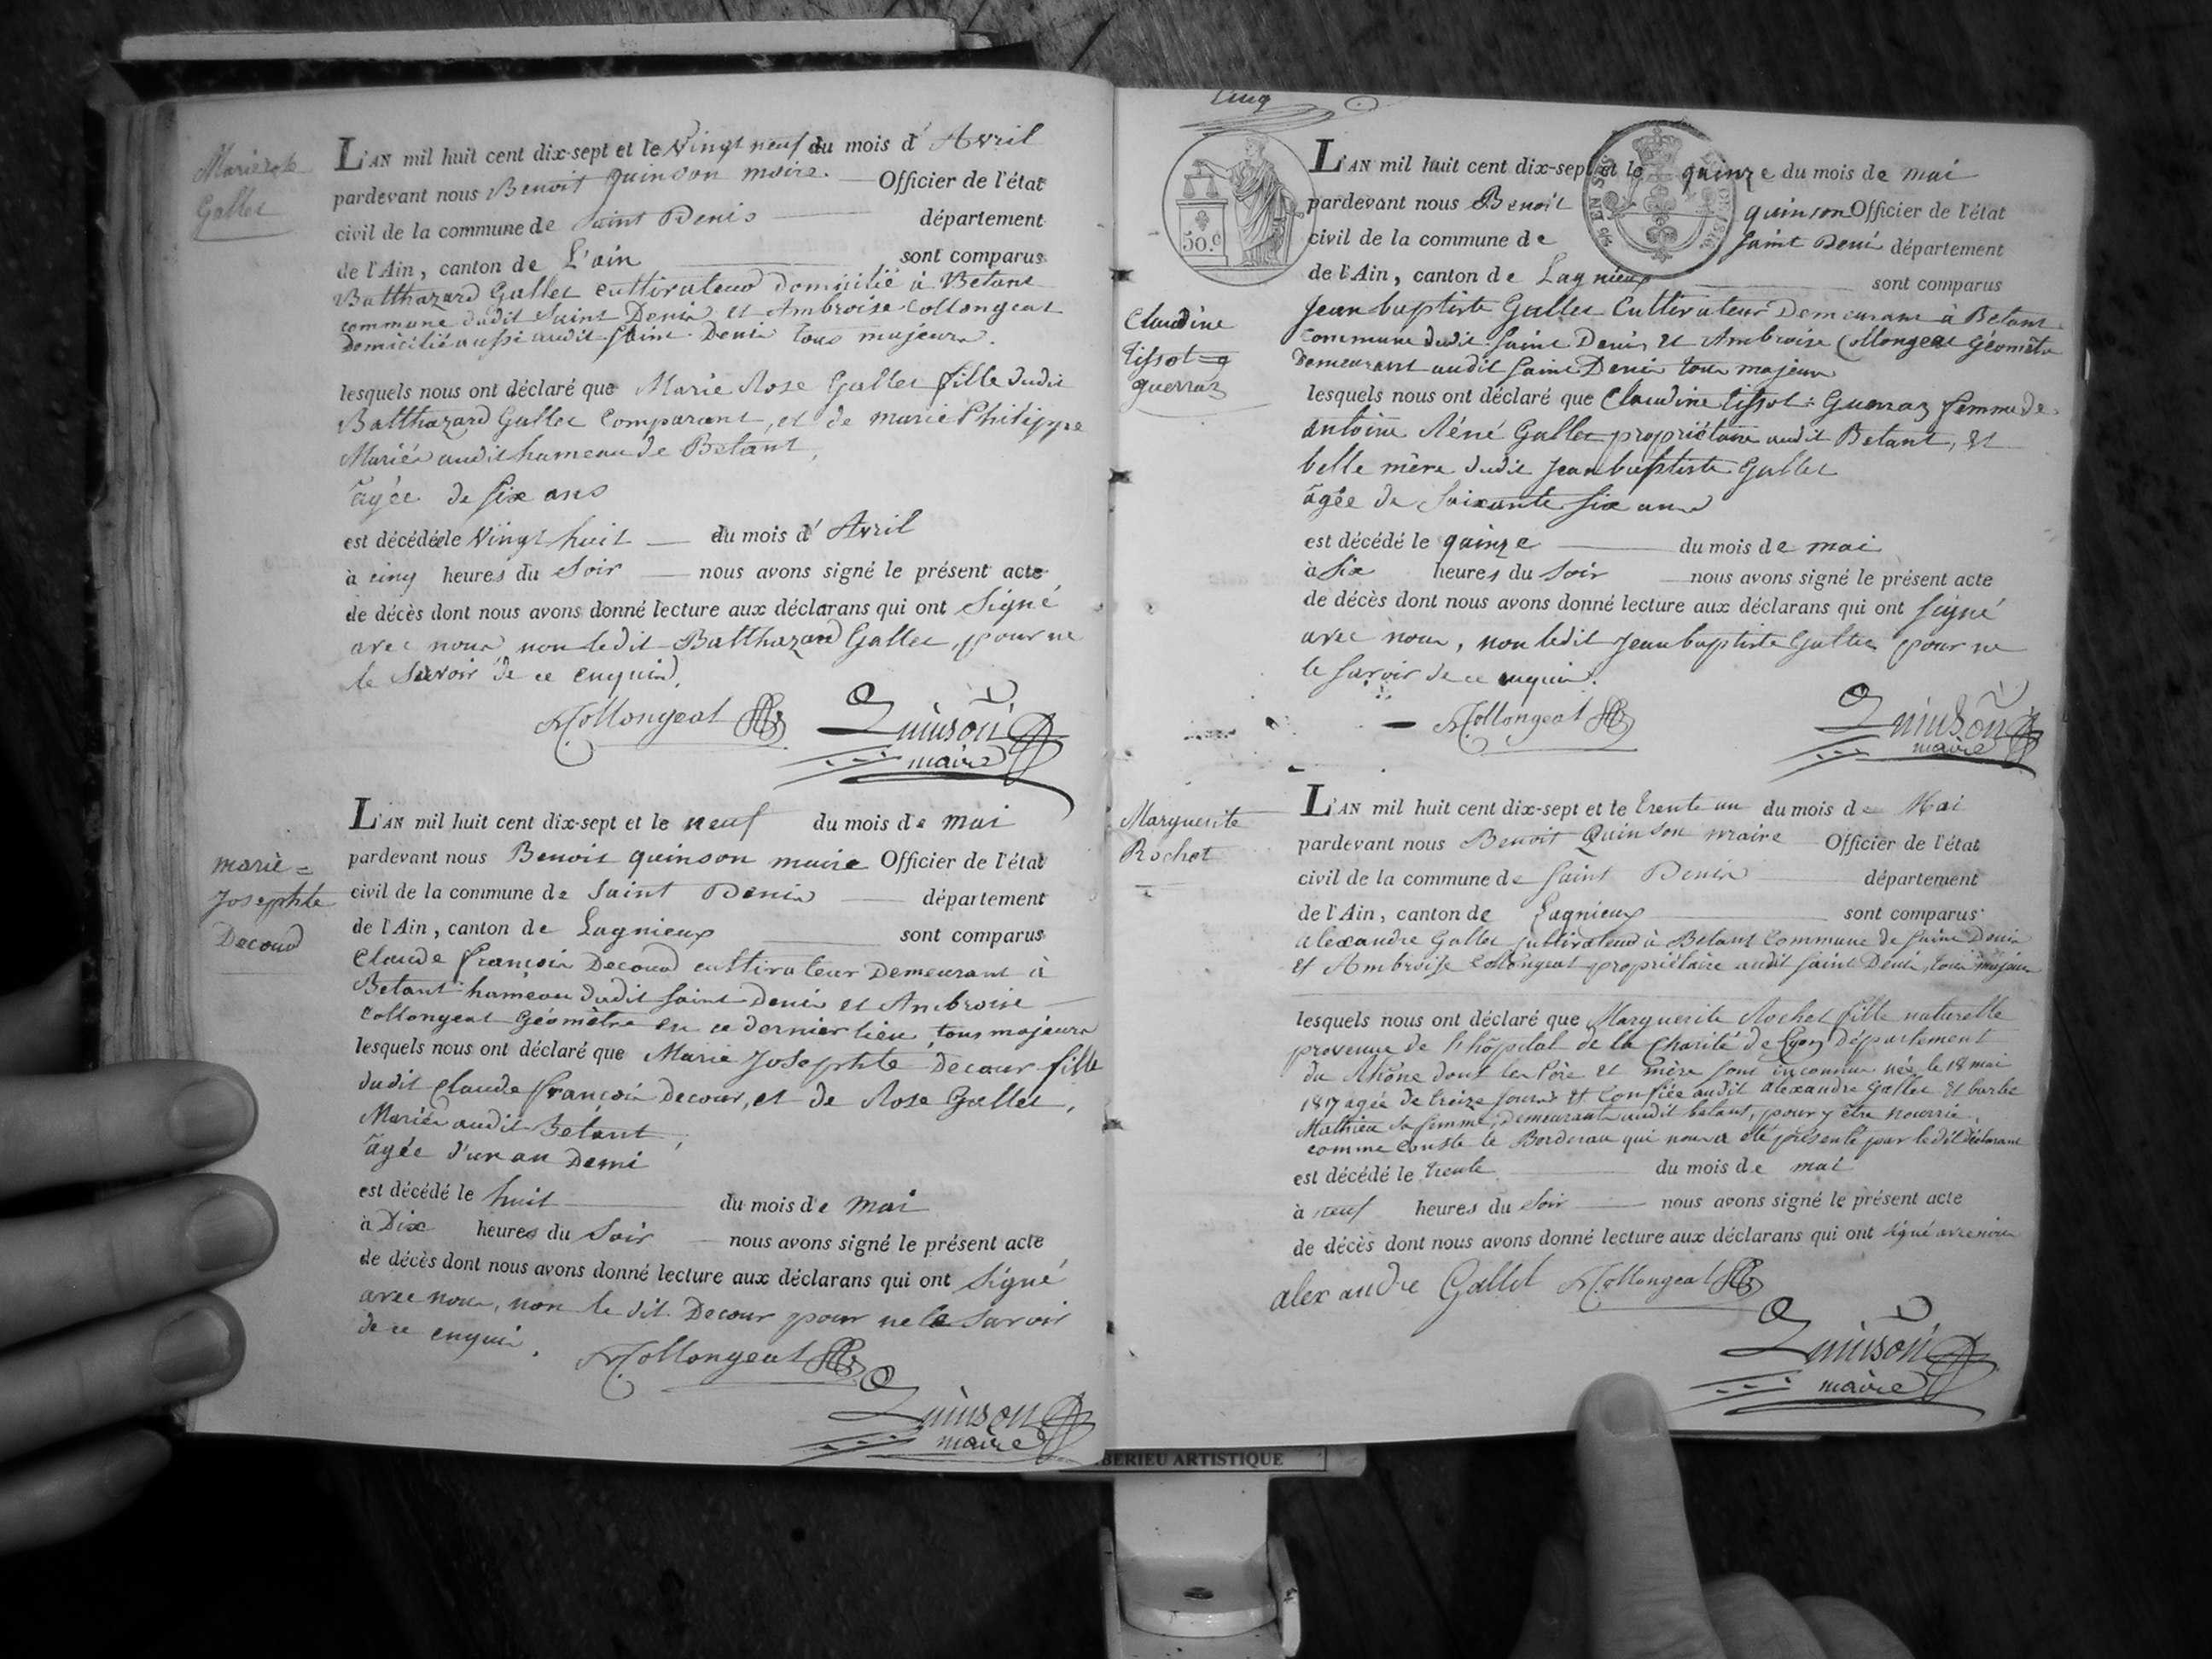 Marie rose
Gallet
L'AN mil huit cent dix-sept et le Vingt neuf du mois d' Avril
pardevant nous Benoit quinson maire. Officier de l'état
civil de la commune de Saint Denis département
de l'Ain, canton de L'ain sont comparus
Balthazard Gallet cultivateur domicilié à Betant
commune dudit Saint Denis et Ambroise Collongeat
domicilié aussi audit Saint Denis tous majeurs.
lesquels nous ont déclaré que Marie Rose Gallet fille dudit
Balthazard Gallet Comparant, et de marie Philippe
Mariés audit hameau de Betant,
âgée de six ans
est décédée le Vingt huit du mois d' Avril
à cinq heures du Soir nous avons signé le présent acte
de décès dont nous avons donné lecture aux déclarans qui ont signé
avec nous, non ledit Balthazard Gallet, pour ne
le savoir de ce enquis.
A. Collongeat Quinson
maire
marie =
Josephte
Decoud
L'AN mil huit cent dix-sept et le neuf du mois de mai
pardevant nous Benoit quinson maire Officier de l'état
civil de la commune de Saint Denis département
de l'Ain, canton de Lagnieux sont comparus
Claude françois Decoud cultivateur Demeurant à
Betant hameau dudit Saint Denis et Ambroise
Collongeat Géomètre en ce dernier lieu, tous majeurs
lesquels nous ont déclaré que Marie Josephte Decour fille
dudit Claude françois decour, et de Rose Gallet,
Mariés audit Betant,
âgée d'un an Demi
est décédé le huit du mois de mai
à Dix heures du Soir nous avons signé le présent acte
de décès dont nous avons donné lecture aux déclarans qui ont signé
avec nous, non le dit Decour pour ne le savoir
de ce enquis.
A. Collongeat
Quinson
maire
Cinq
50.c
L'AN mil huit cent dix-sept et le quinze du mois de mai
pardevant nous Benoit quinson Officier de l'état
civil de la commune de Saint Denis département
de l'Ain, canton de Lagnieux sont comparus
Claudine
Tissot =
guerraz
Jean baptiste Gallet Cultivateur Demeurant à Betant
Commune dudit Saint Denis et Ambroise Collongeat Géomètre
Demeurant audit Saint Denis tous majeurs
lesquels nous ont déclaré que Claudine Tissot = Guerraz femme de
antoine Réné Gallet propriétaire audit Betant, et
belle mère dudit Jean baptiste Gallet
âgée de Soixante six ans
est décédé le quinze du mois de mai
à Six heures du Soir nous avons signé le présent acte
de décès dont nous avons donné lecture aux déclarans qui ont signé
avec nous, non ledit Jean baptiste Gallet pour ne
le savoir de ce enquis.
A. Collongeat Quinson
maire
Marguerite
Rochet
L'AN mil huit cent dix-sept et le trente un du mois de Mai
pardevant nous Benoit Quinson maire Officier de l'état
civil de la commune de Saint Denis département
de l'Ain, canton de Lagnieux sont comparus
alexandre Gallet cultivateur à Betant Commune de Saint Denis
et Ambroise Collongeat propriétaire audit Saint Denis, tous majeurs
lesquels nous ont déclaré que Marguerite Rochet fille naturelle
provenue de l'hôpital de la Charité de Lyon Département
du Rhône dont les Père et mère sont inconnus née le 18 mai
1817 agée de treize jours et Confiée audit alexandre Gallet et barbe
Mathieu sa femme, demeurants audit betant, pour y être nourrie,
comme conste le Bordereau qui nous a été présenté par le dit déclarant
est décédé le trente du mois de mai
à neuf heures du Soir nous avons signé le présent acte
de décès dont nous avons donné lecture aux déclarans qui ont signé avec nous
alexandre Gallet A. Collongeat
Quinson
maire
BERIEU ARTISTIQUE